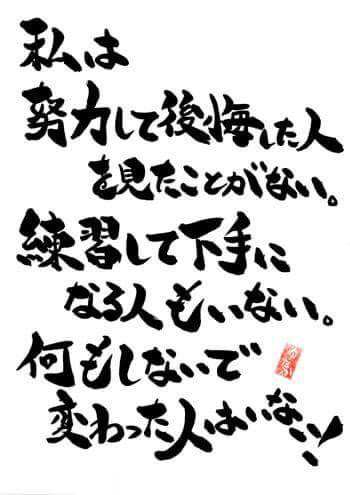 私は
努力して後悔した人
を見たことがない。
練習して下手に
なる人もいない。
何もしないで
変わった人はいない!
ゆたか